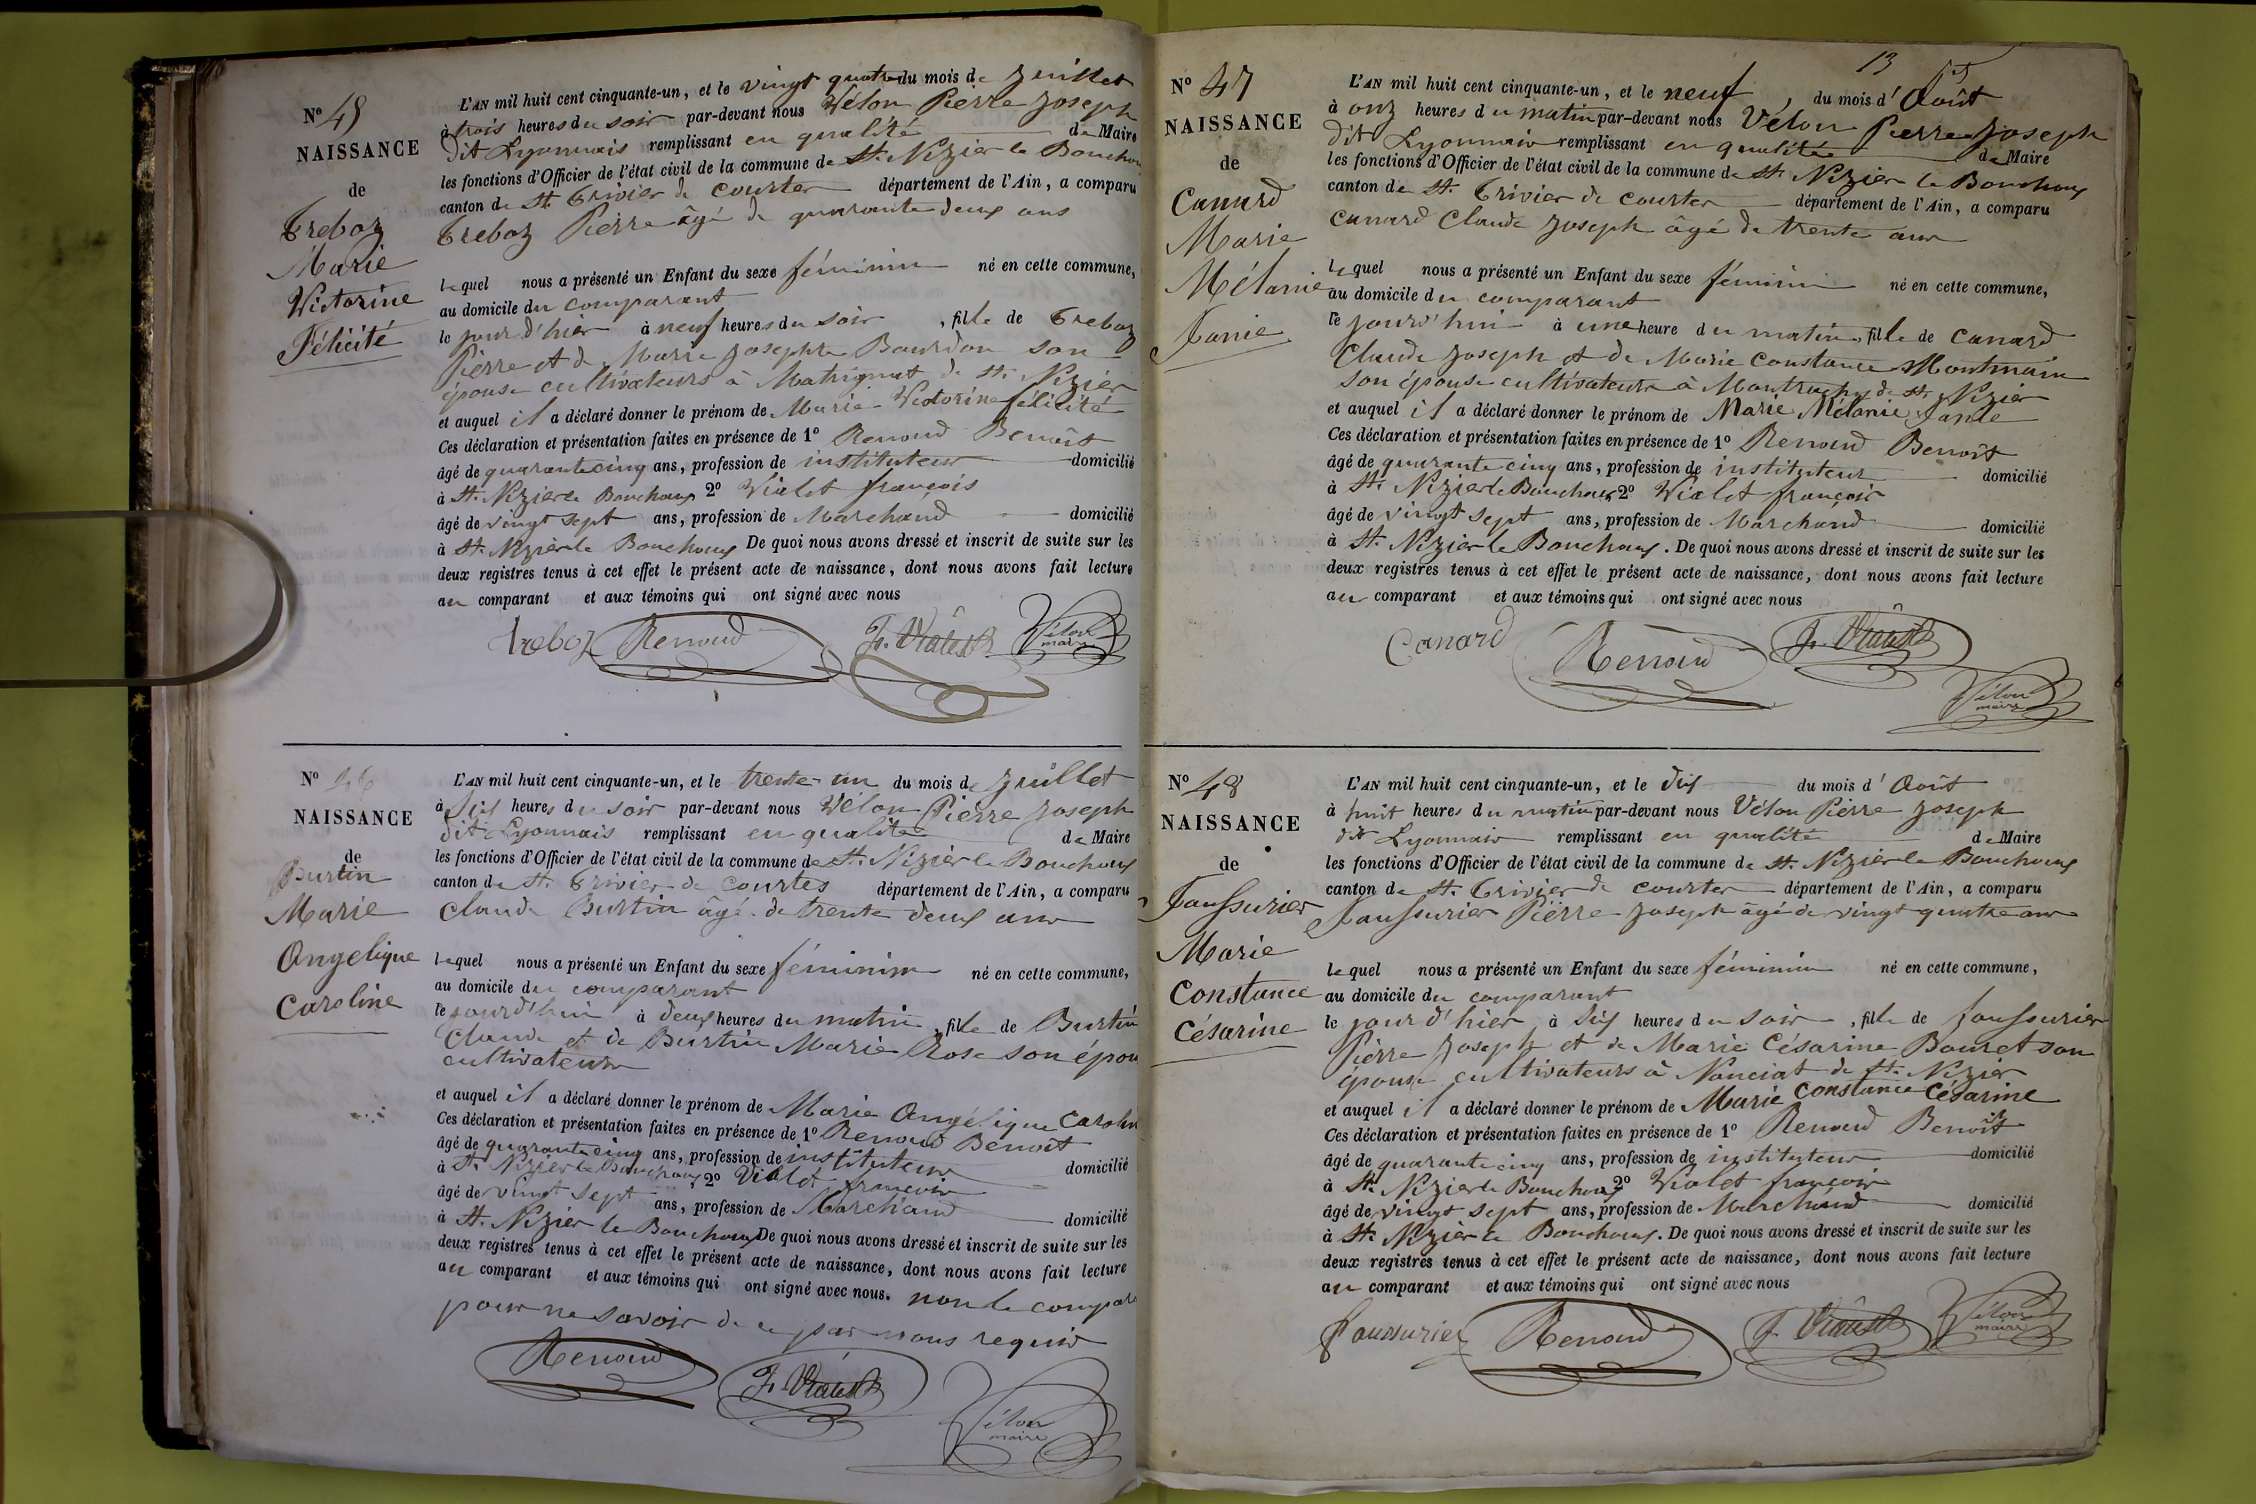 N° 45
NAISSANCE
de
Treboz
Marie
Victorine
Félicité
L'AN mil huit cent cinquante-un, et le vingt quatre du mois de Juillet
à trois heures du soir par-devant nous Vélon Pierre Joseph
dit Lyonnais remplissant en qualité de Maire
les fonctions d'Officier de l'état civil de la commune de St. Nizier le Bouchoux
canton de St. Trivier de courtes département de l'Ain, a comparu
Treboz Pierre âgé de quarante deux ans
lequel nous a présenté un Enfant du sexe féminin né en cette commune,
au domicile du comparant
le jour d'hier à neuf heures du soir, fille de Treboz
Pierre et de Marie Josephte Bourdon son
épouse cultivateurs à Matrignat de St. Nizier
et auquel il a déclaré donner le prénom de Marie Victorine félicité
Ces déclaration et présentation faites en présence de 1° Renoud Benoît
âgé de quarante cinq ans, profession de instituteur domicilié
à St. Nizier le Bouchoux 2° Vialet françois
âgé de vingt sept ans, profession de Marchand domicilié
à St. Nizier le Bouchoux De quoi nous avons dressé et inscrit de suite sur les
deux registres tenus à cet effet le présent acte de naissance, dont nous avons fait lecture
au comparant et aux témoins qui ont signé avec nous
treboz Renoud F. Vialet Vélon
maire
N° 46
NAISSANCE
de
Burtin
Marie
Angelique
Caroline
L'AN mil huit cent cinquante-un, et le trente-un du mois de Juillet
à six heures du soir par-devant nous Vélon Pierre Joseph
dit Lyonnais remplissant en qualité de Maire
les fonctions d'Officier de l'état civil de la commune de St. Nizier le Bouchoux
canton de St. Trivier de courtes département de l'Ain, a comparu
Claude Burtin âgé de trente deux ans
lequel nous a présenté un Enfant du sexe féminin né en cette commune,
au domicile du comparant
le jourd'hui à deux heures du matin, fille de Burtin
Claude et de Burtin Marie Rose son épou
cultivateurs
et auquel il a déclaré donner le prénom de Marie Angélique Carolin
Ces déclaration et présentation faites en présence de 1° Renoud Benoit
âgé de quarante cinq ans, profession de instituteur domicilié
à St. Nizier le Bouchoux 2° Vialet françois
âgé de vingt sept ans, profession de Marchand domicilié
à St. Nizier le Bouchoux De quoi nous avons dressé et inscrit de suite sur les
deux registres tenus à cet effet le présent acte de naissance, dont nous avons fait lecture
au comparant et aux témoins qui ont signé avec nous. non le compara
pour ne savoir de ce par nous requis
Renoud F. Vialet Vélon
maire
13
N° 47
NAISSANCE
de
Canard
Marie
Mélanie
Fanie
L'AN mil huit cent cinquante-un, et le neuf du mois d'Août
à onz heures du matin par-devant nous Vélon Pierre Joseph
dit Lyonnais remplissant en qualité de Maire
les fonctions d'Officier de l'état civil de la commune de St. Nizier le Bouchoux
canton de St. Trivier de courtes département de l'Ain, a comparu
Canard Claude Joseph âgé de trente ans
lequel nous a présenté un Enfant du sexe féminin né en cette commune,
au domicile du comparant
le jourd'hui à une heure du matin, fille de Canard
Claude Joseph et de Marie Constance Montmain
son épouse cultivateurs à de St. Nizier
et auquel il a déclaré donner le prénom de Marie Mélanie Fanie
Ces déclaration et présentation faites en présence de 1° Renoud Benoît
âgé de quarante cinq ans, profession de instituteur domicilié
à St. Nizier le Bouchoux 2° Vialet françois
âgé de vingt sept ans, profession de Marchand domicilié
à St. Nizier le Bouchoux. De quoi nous avons dressé et inscrit de suite sur les
deux registres tenus à cet effet le présent acte de naissance, dont nous avons fait lecture
au comparant et aux témoins qui ont signé avec nous
Canard Renoud F. Vialet
Vélon
maire
N° 48
NAISSANCE
de
Faussurier
Marie
Constance
Césarine
L'AN mil huit cent cinquante-un, et le dix du mois d'Août
à huit heures du matin par-devant nous Vélon Pierre Joseph
dit Lyonnais remplissant en qualité de Maire
les fonctions d'Officier de l'état civil de la commune de St. Nizier le Bouchoux
canton de St. Trivier de courtes département de l'Ain, a comparu
Faussurier Pierre Joseph âgé de vingt quatre ans
lequel nous a présenté un Enfant du sexe féminin né en cette commune,
au domicile du comparant
le jour d'hier à six heures du soir, fille de faussurier
Pierre Joseph et de Marie Césarine Bouret son
épouse cultivateurs à Nanciat de St. Nizier
et auquel il a déclaré donner le prénom de Marie Constance Césarine
Ces déclaration et présentation faites en présence de 1° Renoud Benoît
âgé de quarante cinq ans, profession de instituteur domicilié
à St. Nizier le Bouchoux 2° Vialet françois
âgé de vingt sept ans, profession de Marchand domicilié
à St. Nizier le Bouchoux. De quoi nous avons dressé et inscrit de suite sur les
deux registres tenus à cet effet le présent acte de naissance, dont nous avons fait lecture
au comparant et aux témoins qui ont signé avec nous
faussurier Renoud F. Vialet Vélon
maire